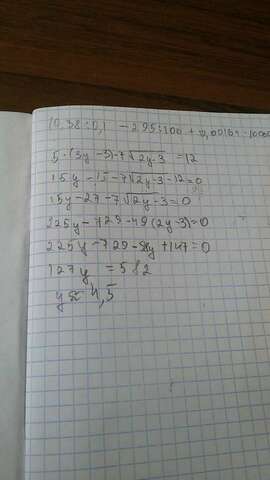 10,38:0,1 - 295:100 + 0,0016
5·(3y-3)-7√2y-3 = 12
15y-15-7√2y-3-12=0
15y-27-7√2y-3=0
225y-729-49(2y-3)=0
225y-729-98y+147=0
127y = 582
y≈4,5